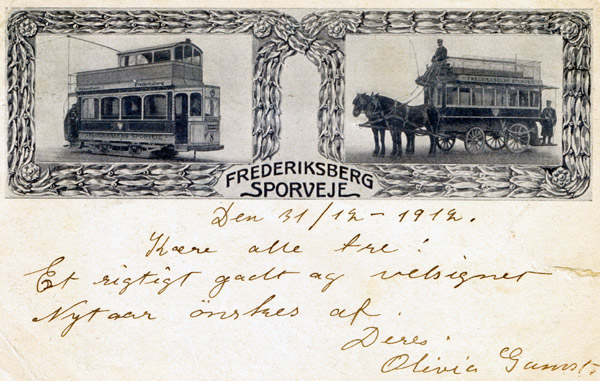 FREDERIKSBERG
SPORVEJE
Den 31/12 - 1912.
Kære alle tre!
Et rigtigt godt og velsignet
Nytaar önskes af.
Deres.
Olivia Gamst.